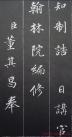 知制誥日講官
翰林院編修
臣董其昌奉